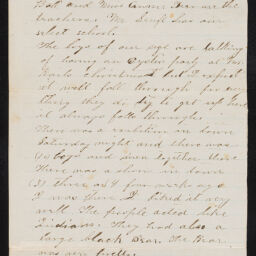 Bob and Miss Annie Dean are the
teachers. Mr. has our
select school.
The boys of our age are talking
of having an oyster party at
Christmas but I expect
it will fall through for every
thing they do try to get up here
it always falls through.
There was a in down
Saturday night and there was
10 boys and men together there.
There was a show in down
three or 4 four weeks ago
I was there I liked it very
well. The people acted like
Indians. They had also a
large black bear. The bear
was very